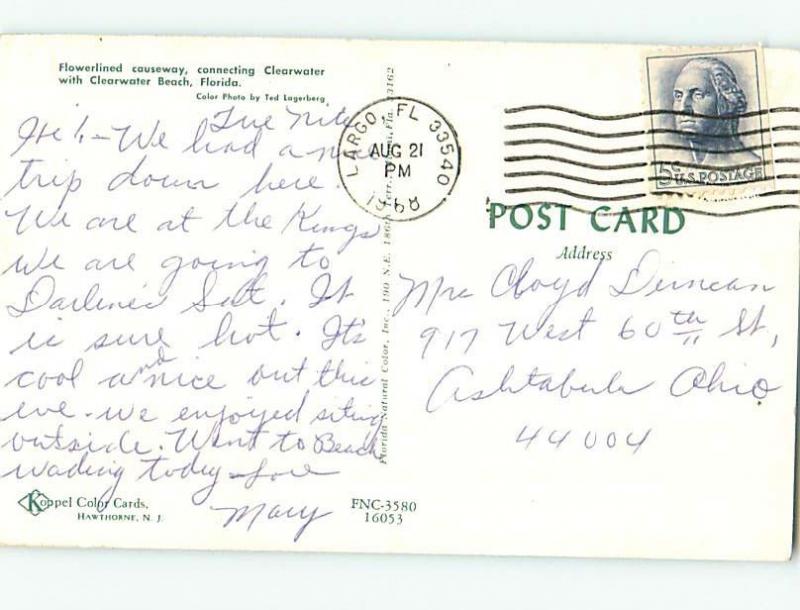 Flowerlined causeway, connecting Clearwater
with Clearwater Beach, Florida.
Color Photo by Ted Lagerberg
Tue Nite
Hi!- We had a nice
trip down here.
We are at the Kings
we are going to
Darlene's Sat. It
is sure hot. It's
cool and nice out this
eve. we enjoyed siting
outside. Went to Beach
wading today - Love
Mary
Koppel Color Cards.
HAWTHORNE, N. J.
Florida Natural Color, Inc., 190 N.E. 186th Terr., Fla. 33162
FNC-3580
16053
LARGO, FL 33540
AUG 21
PM
5c U.S. POSTAGE
POST CARD
Address
Mrs Cloyd Duncan
917 West 60th St,
Ashtabula Ohio
44004